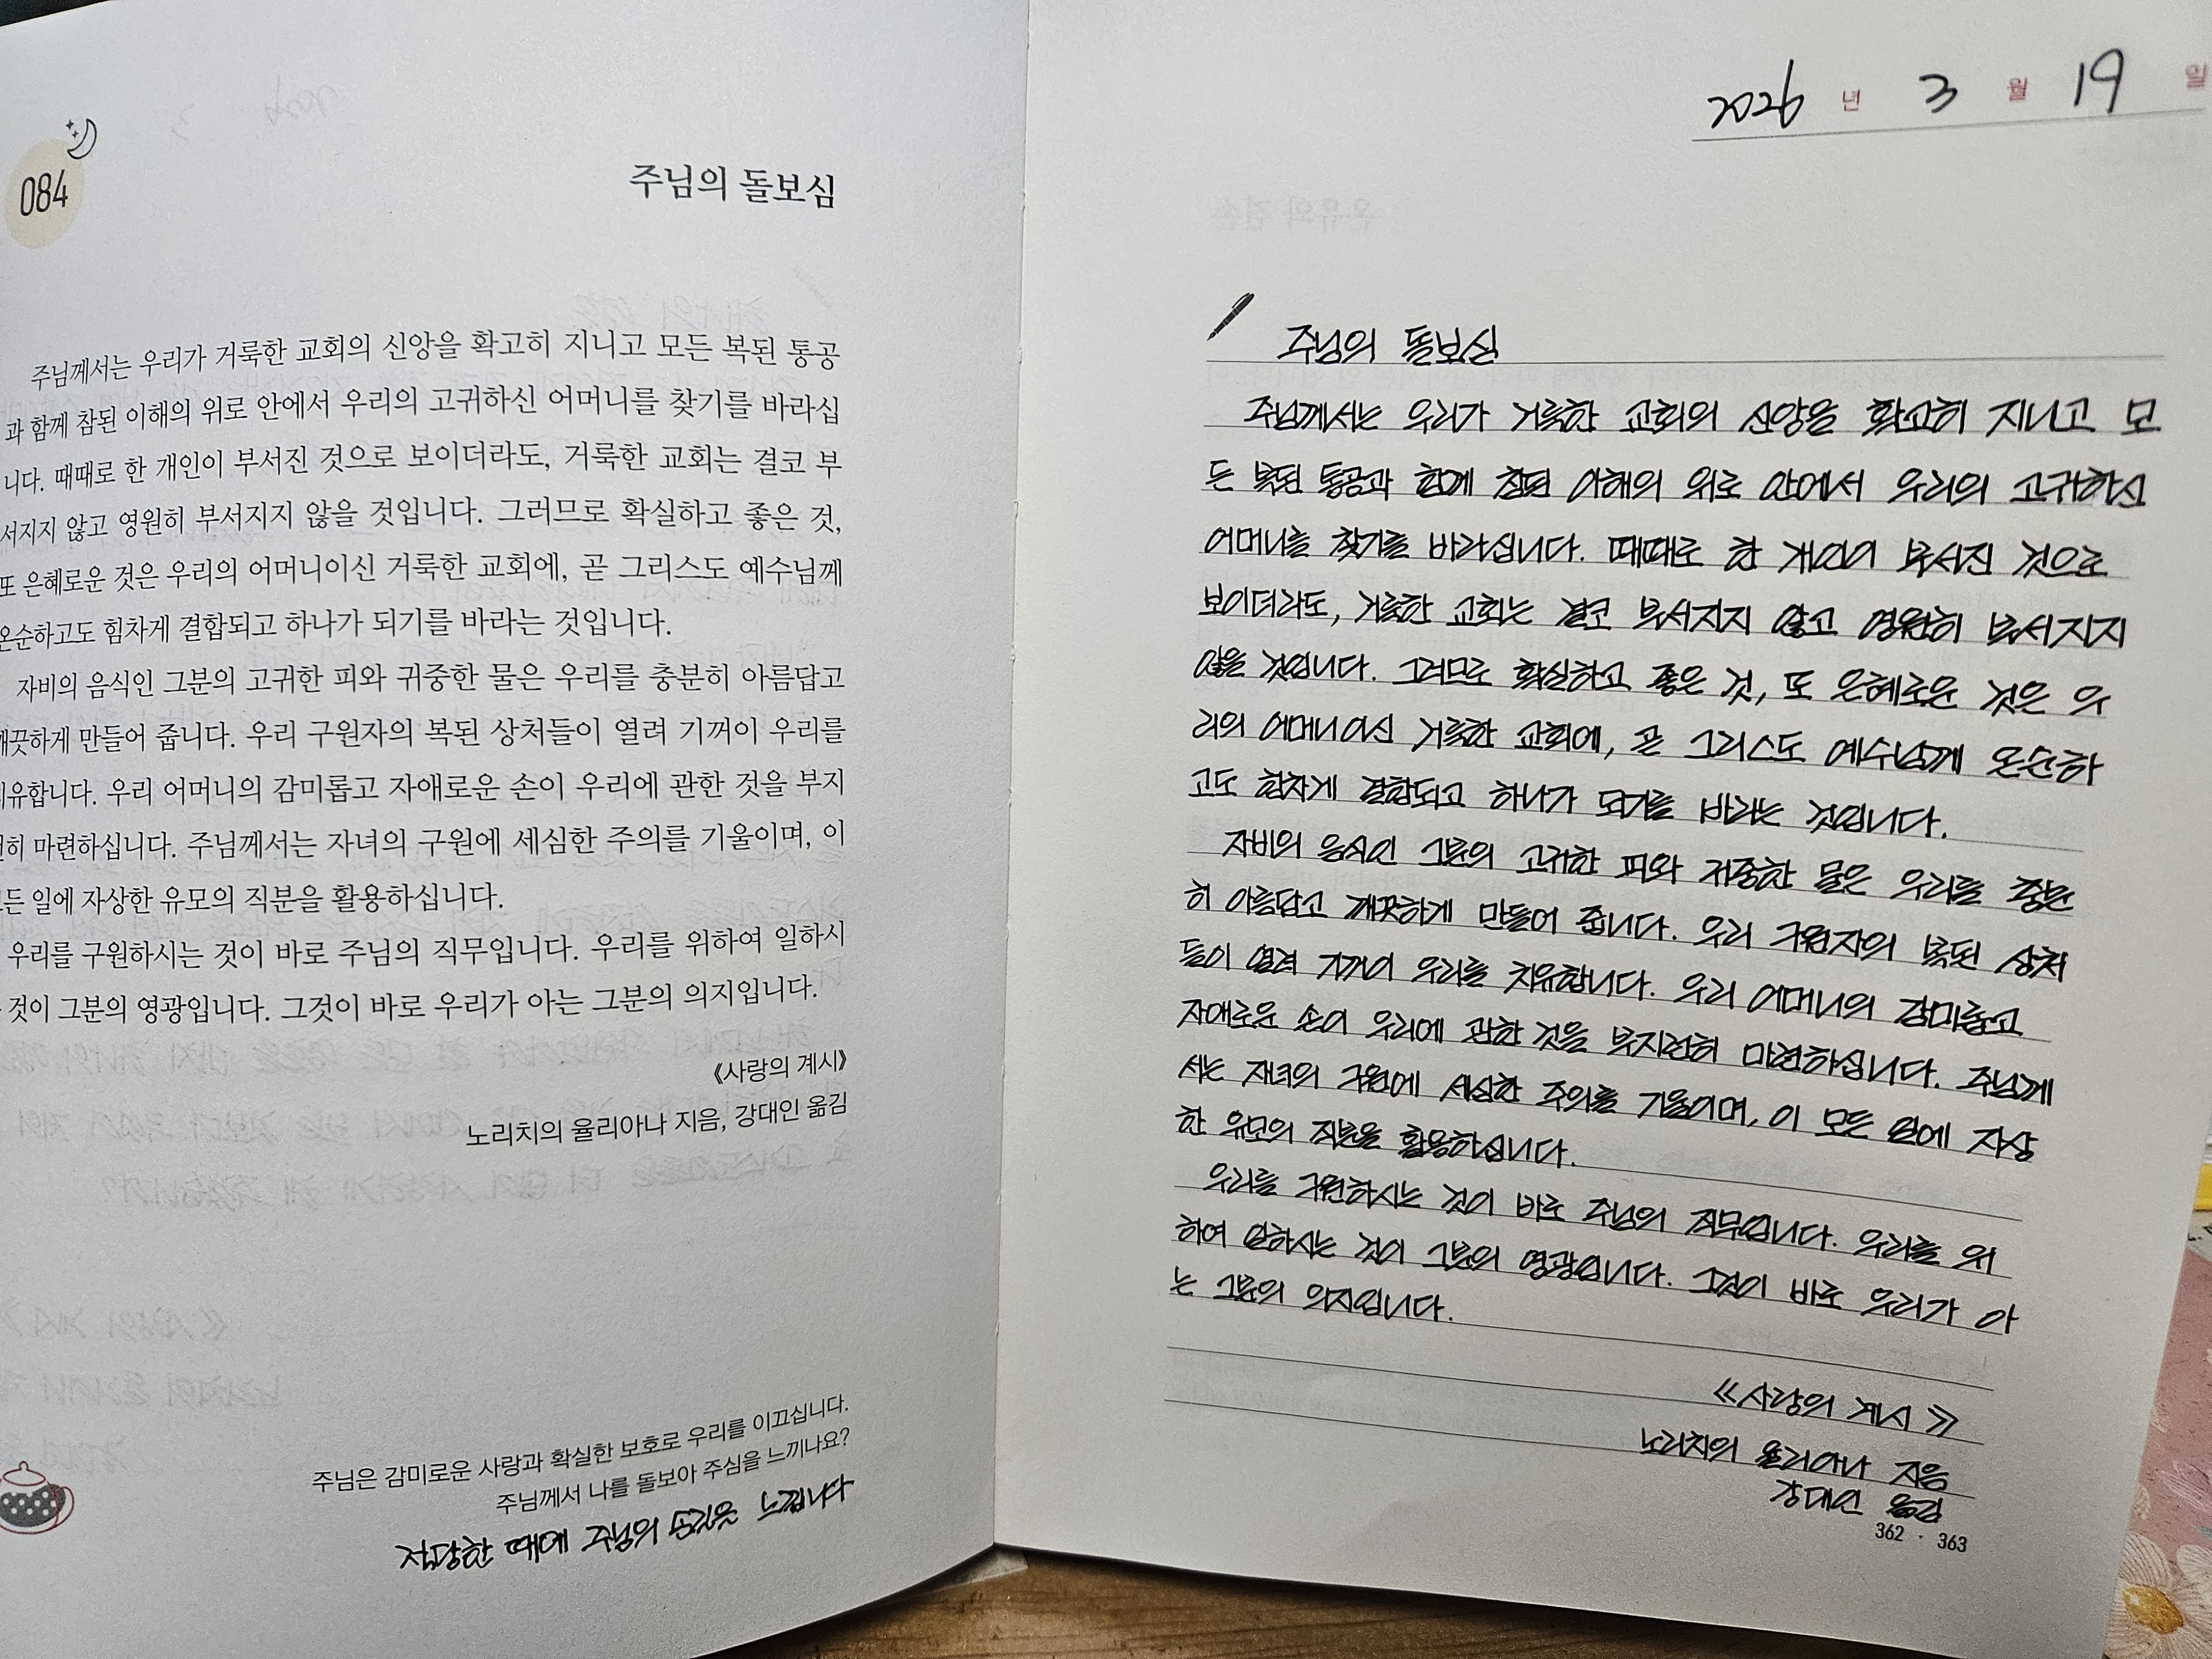 084
주님의 돌보심
주님께서는 우리가 거룩한 교회의 신앙을 확고히 지니고 모든 복된 통공
과 함께 참된 이해의 위로 안에서 우리의 고귀하신 어머니를 찾기를 바라십
니다. 때때로 한 개인이 부서진 것으로 보이더라도, 거룩한 교회는 결코 부
서지지 않고 영원히 부서지지 않을 것입니다. 그러므로 확실하고 좋은 것,
또 은혜로운 것은 우리의 어머니이신 거룩한 교회에, 곧 그리스도 예수님께
온순하고도 힘차게 결합되고 하나가 되기를 바라는 것입니다.
자비의 음식인 그분의 고귀한 피와 귀중한 물은 우리를 충분히 아름답고
깨끗하게 만들어 줍니다. 우리 구원자의 복된 상처들이 열려 기꺼이 우리를
치유합니다. 우리 어머니의 감미롭고 자애로운 손이 우리에 관한 것을 부지
런히 마련하십니다. 주님께서는 자녀의 구원에 세심한 주의를 기울이며, 이
모든 일에 자상한 유모의 직분을 활용하십니다.
우리를 구원하시는 것이 바로 주님의 직무입니다. 우리를 위하여 일하시
는 것이 그분의 영광입니다. 그것이 바로 우리가 아는 그분의 의지입니다.
《사랑의 계시》
노리치의 율리아나 지음, 강대인 옮김
주님은 감미로운 사랑과 확실한 보호로 우리를 이끄십니다.
주님께서 나를 돌보아 주심을 느끼나요?
적당한 때에 주님의 손길을 느낍니다
2026 년 3 월 19 일
주님의 돌보심
주님께서는 우리가 거룩한 교회의 신앙을 확고히 지니고 모
든 복된 통공과 함께 참된 이해의 위로 안에서 우리의 고귀하신
어머니를 찾기를 바라십니다. 때때로 한 개인이 부서진 것으로
보이더라도, 거룩한 교회는 결코 부서지지 않고 영원히 부서지지
않을 것입니다. 그러므로 확실하고 좋은 것, 또 은혜로운 것은 우
리의 어머니이신 거룩한 교회에, 곧 그리스도 예수님께 온순하
고도 힘차게 결합되고 하나가 되기를 바라는 것입니다.
자비의 음식인 그분의 고귀한 피와 귀중한 물은 우리를 충분
히 아름답고 깨끗하게 만들어 줍니다. 우리 구원자의 복된 상처
들이 열려 기꺼이 우리를 치유합니다. 우리 어머니의 감미롭고
자애로운 손이 우리에 관한 것을 부지런히 마련하십니다. 주님께
서는 자녀의 구원에 세심한 주의를 기울이며, 이 모든 일에 자상
한 유모의 직분을 활용하십니다.
우리를 구원하시는 것이 바로 주님의 직무입니다. 우리를 위
하여 일하시는 것이 그분의 영광입니다. 그것이 바로 우리가 아
는 그분의 의지입니다.
《사랑의 계시》
노리치의 율리아나 지음
강대인 옮김
362 · 363